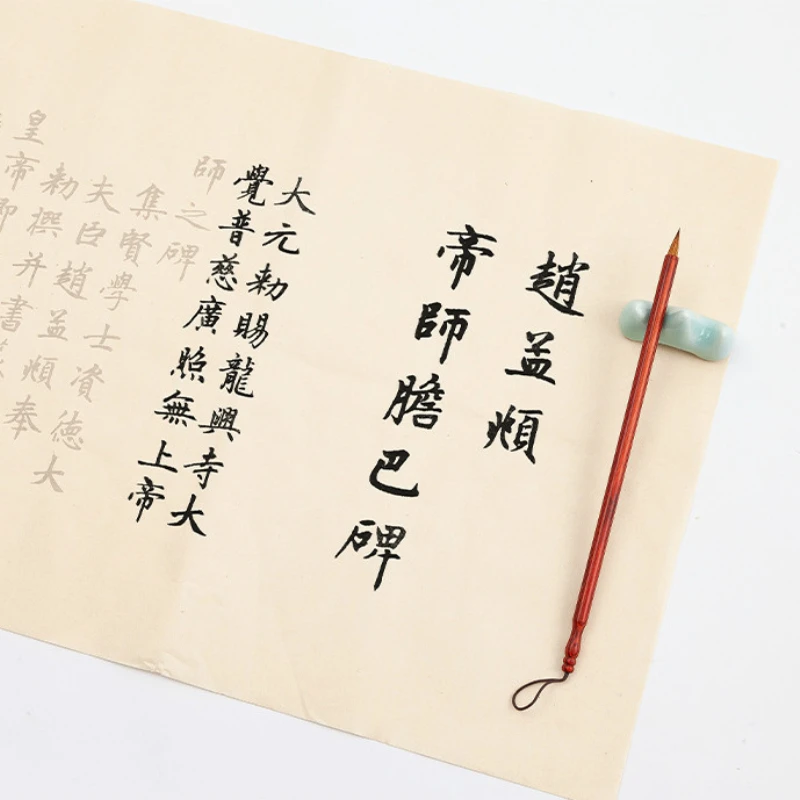 趙孟頫
帝師膽巴碑
大元勅賜龍興寺大
覺普慈廣照無上帝
師之碑
集賢學士資德大
夫臣趙孟頫奉
勅撰并書
皇帝即